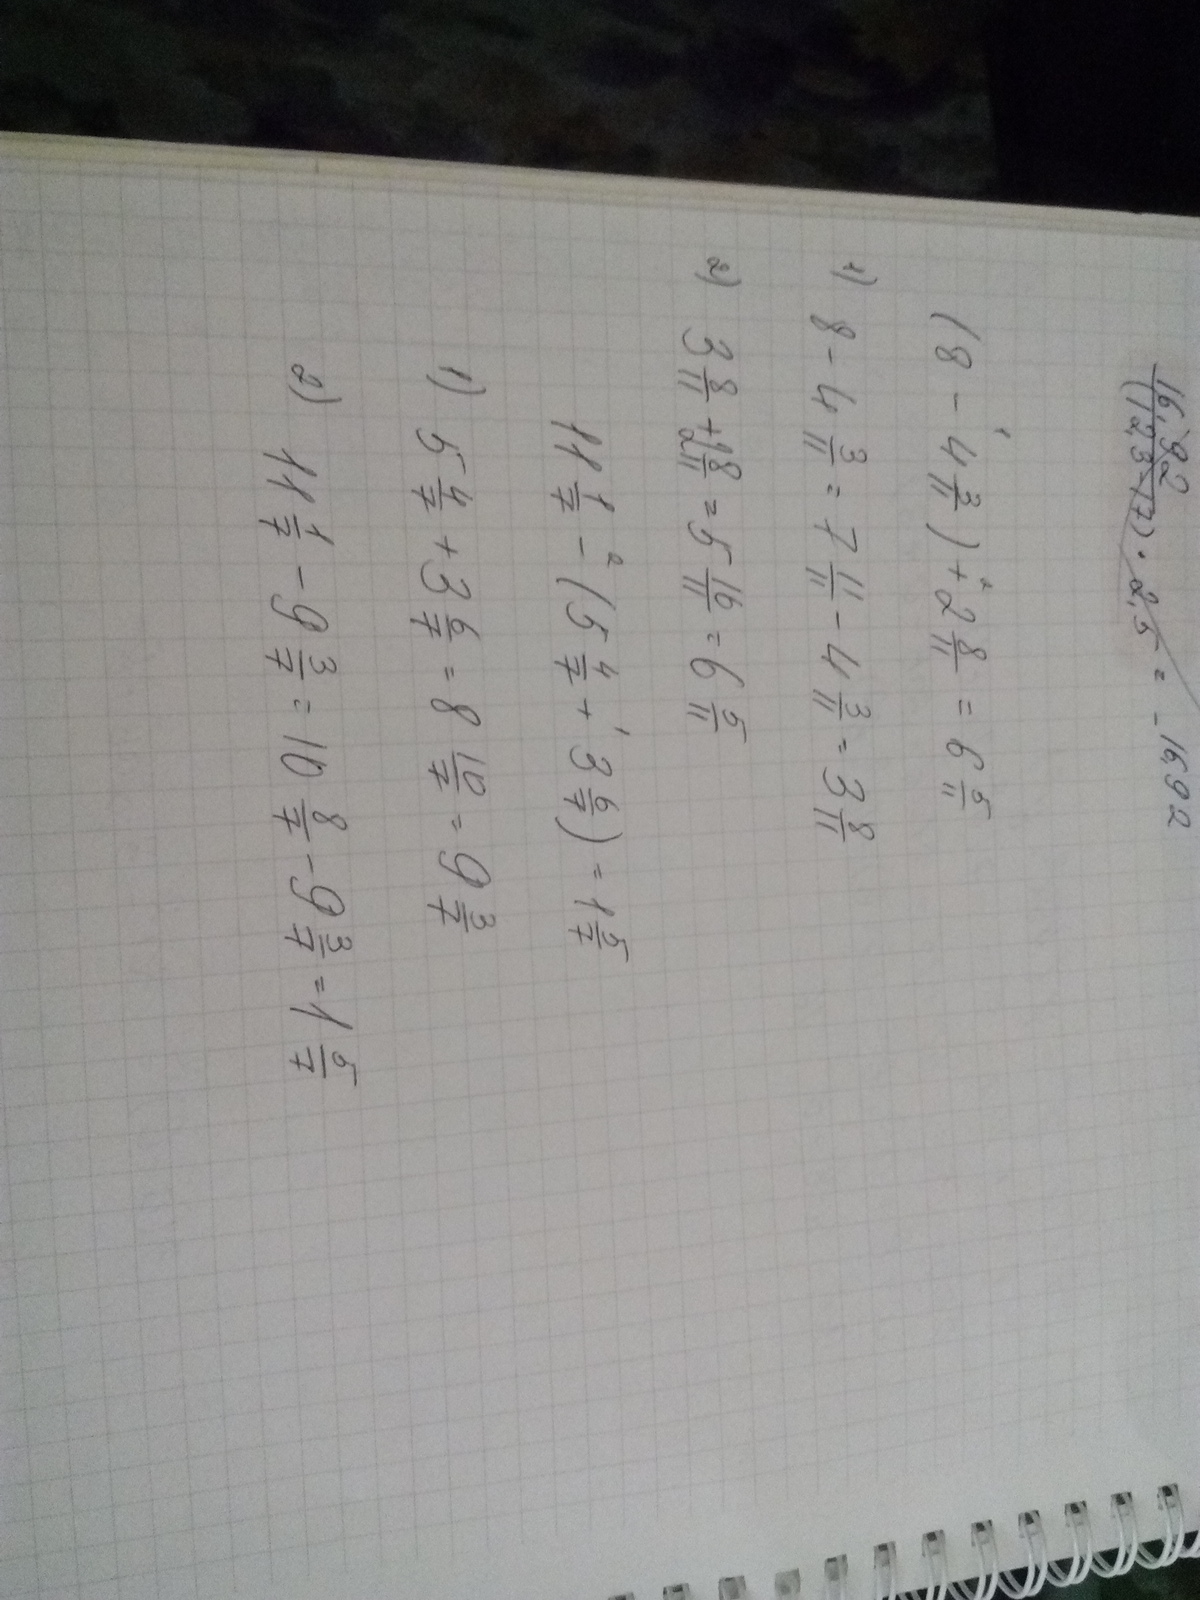 16,92
(12,3-17) · 2,5 = - 16,92
(8 - 4 3/11) + 2 8/11 = 6 5/11
1) 8 - 4 3/11 = 7 11/11 - 4 3/11 = 3 8/11
2) 3 8/11 + 2 8/11 = 5 16/11 = 6 5/11
11 1/7 - (5 4/7 + 3 6/7) = 1 5/7
1) 5 4/7 + 3 6/7 = 8 10/7 = 9 3/7
2) 11 1/7 - 9 3/7 = 10 8/7 - 9 3/7 = 1 5/7